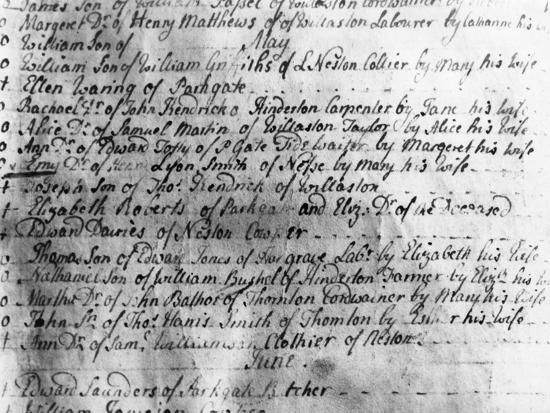 James Son of William of Willaston Cordwainer by
o Margeret Dr. of Henry Matthews of of Willaston Labourer by his
o William Son of May
o William Son of William Griffiths of L Neston Collier by Mary his Wife
+ Ellen Waring of Parkgate
o Rachael Dr. of John Kendrick o Hinderton Carpenter by Jane his Wife
o Alice Dr. of Samuel Martin of Willaston Taylor by Alice his Wife
o Ann Dr. of Edward Toffy of P Gate Tide waiter by Margeret his Wife
o Emy Dr. of Lyon Smith of Nesse by Mary his Wife
+ Joseph Son of Tho.s Kendrick of Willaston
+ Elizabeth Roberts of Parkgate and Eliz: Dr. of the Deceased
+ Edward Davies of Neston Cowper
o Thomas Son of Edward Jones of Lab.r by Elizabeth his Wife
o Nathaniel Son of William Bushel of Hinderton Farmer by Eliz.th his
o Martha Dr. of John Balhot of Thornton Cordwainer by Mary his Wife
o John Sn. of Tho.s Hanis Smith of Thornton by Esther his Wife
+ Ann Dr. of Sam.l Williamson Clothier of Neston
June
+ Edward Saunders of Parkgate Butcher
William